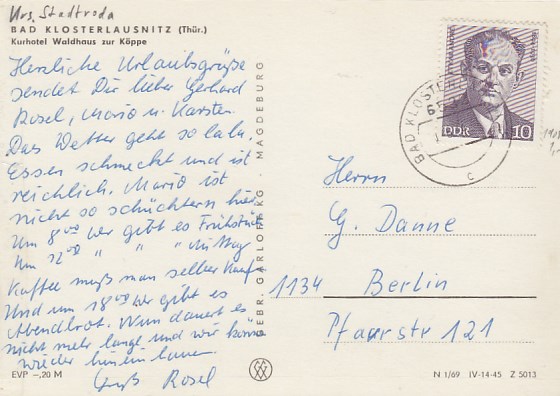 Krs. Stadtroda
BAD KLOSTERLAUSNITZ (Thür.)
Kurhotel Waldhaus zur Köppe
Herzliche Urlaubsgrüße
sendet Dir lieber Gerhard
Rosel, Mario u. Karsten.
Das Wetter geht so lala.
Essen schmeckt und ist
reichlich. Mario ist
nicht so schüchtern hier.
Um 8⁰⁰ Uhr gibt es Frühstück
Um 12⁰⁰ " " " Mittag
Kaffee muß man selber kaufen
Und um 18⁰⁰ Uhr gibt es
Abendbrot. Nun dauert es
nicht mehr lange und wir können
wieder heim
Gruß Rosel
EVP -,20 M
GEBR. GARLOFF KG · MAGDEBURG
BAD KLOSTERL
DDR 10
c
Herrn
G. Danne
1134 Berlin
Pfarrstr 121
N 1/69 IV-14-45 Z 5013